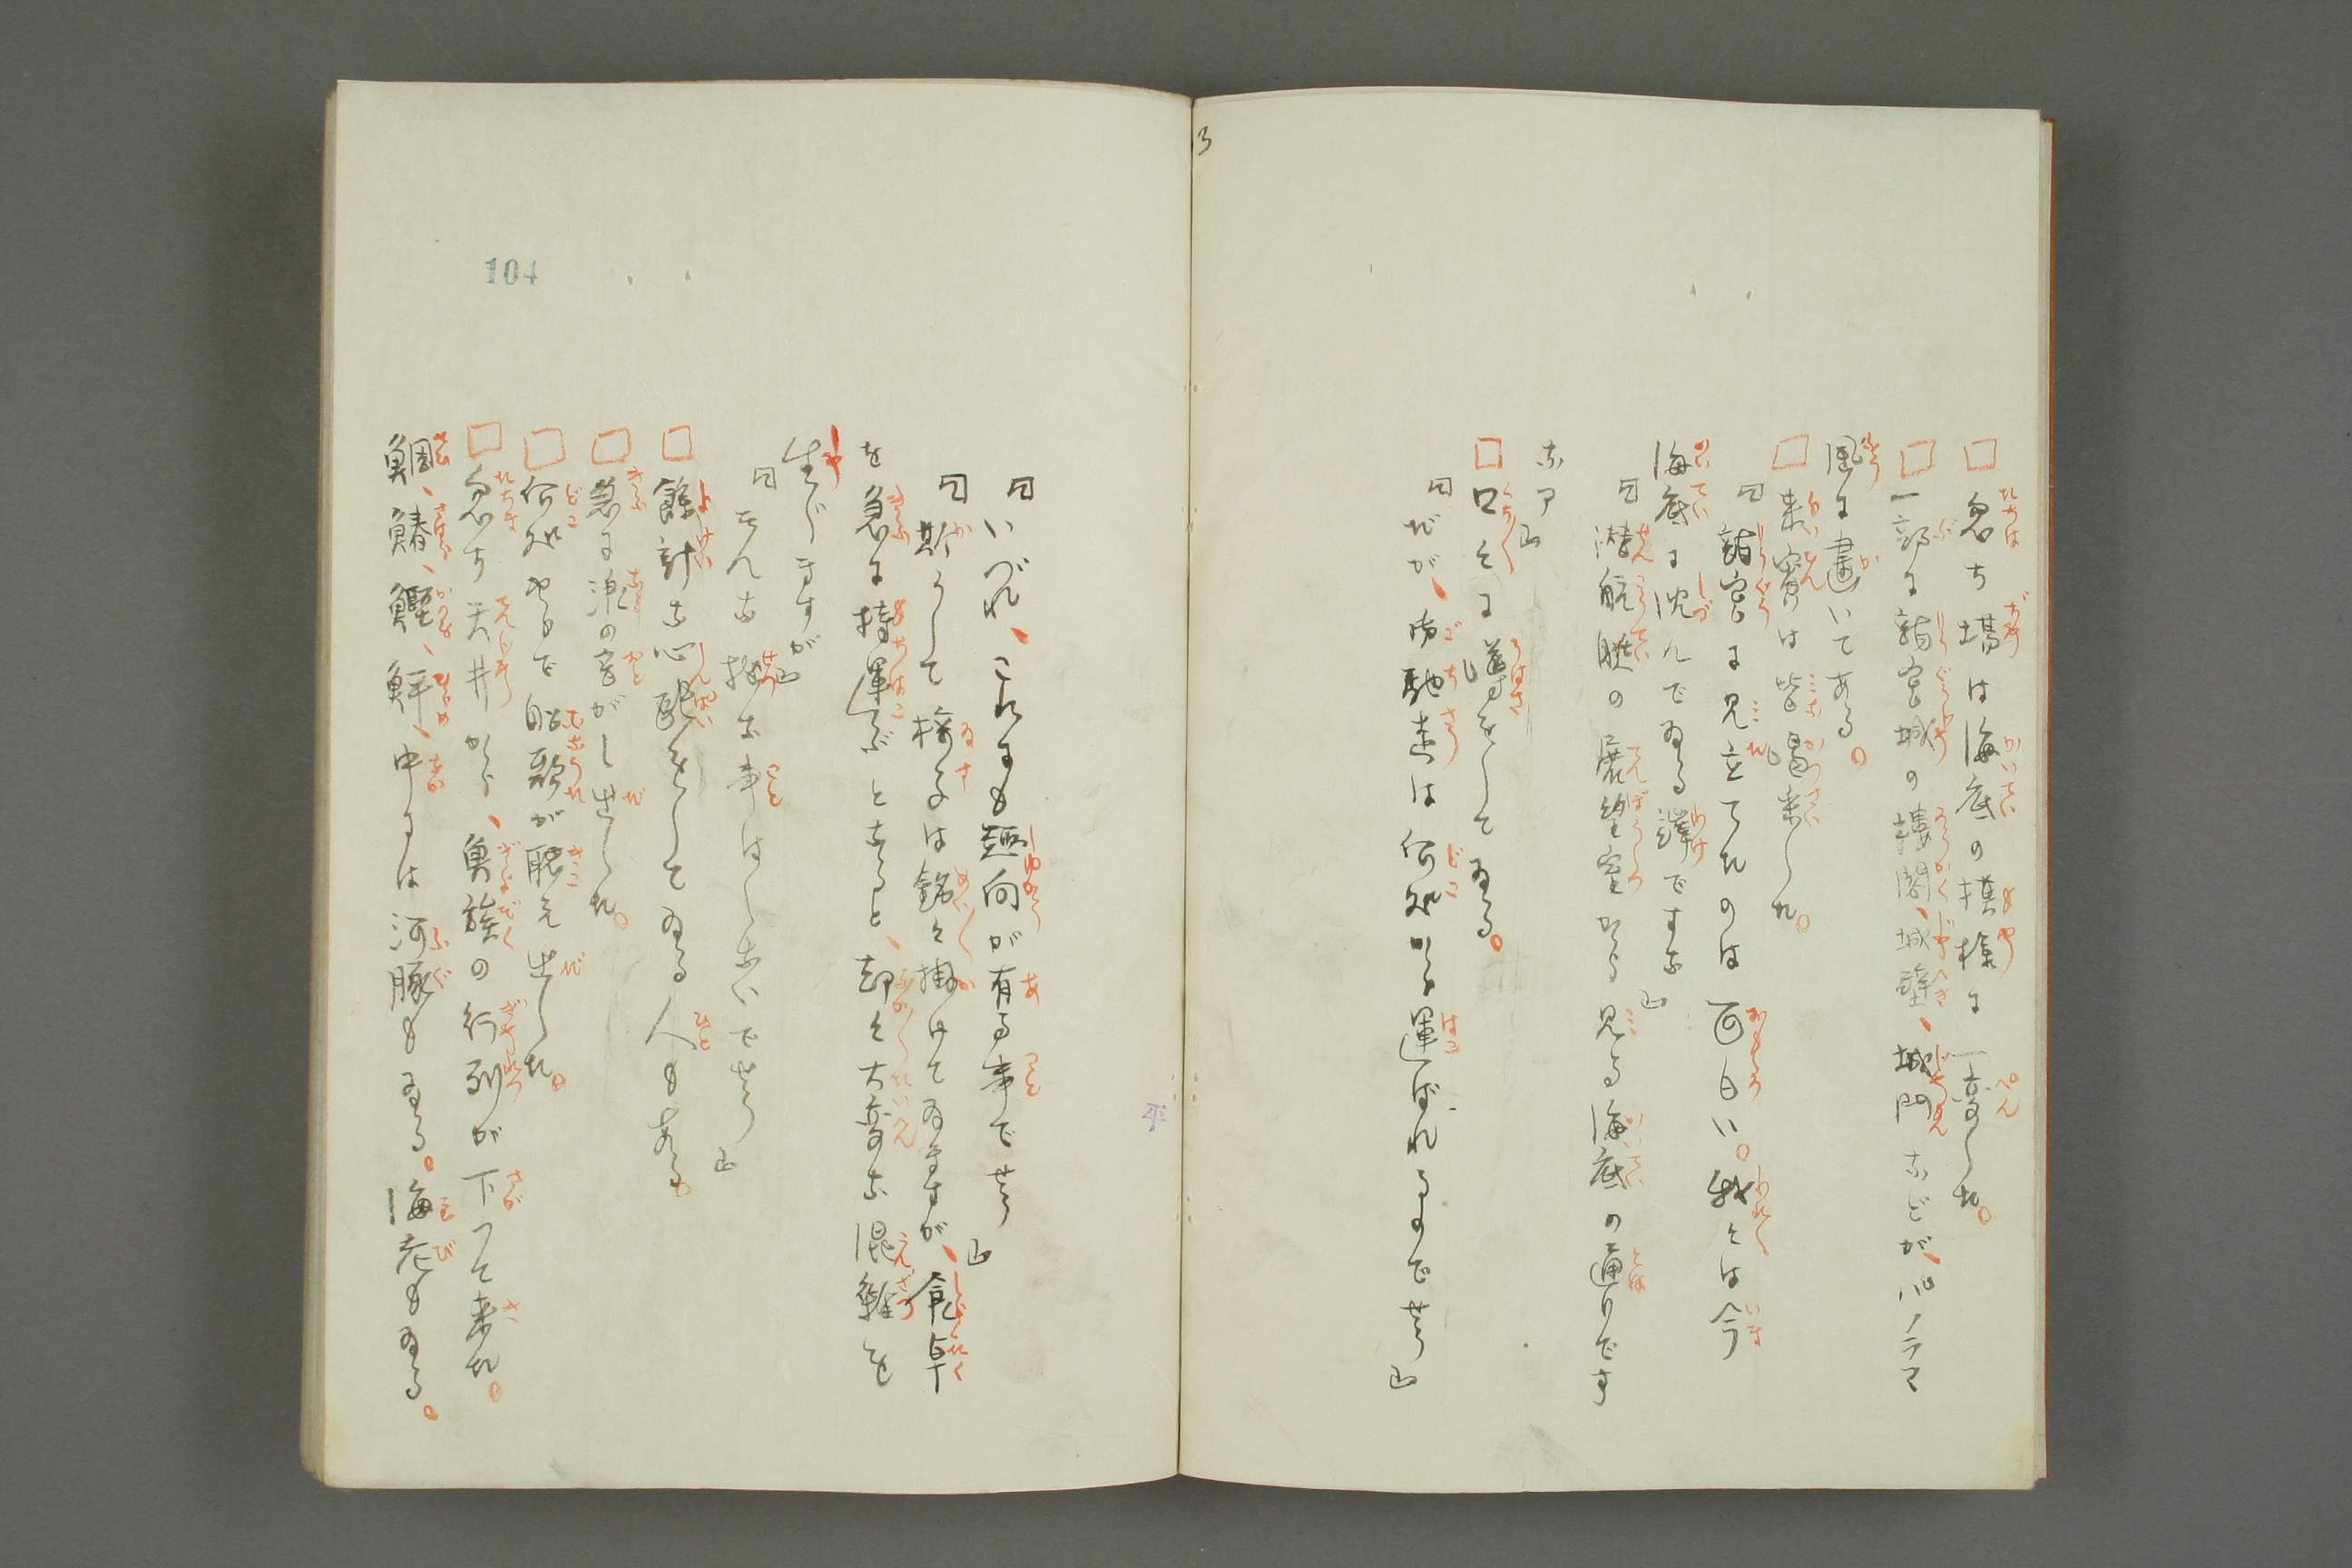 □忽ち場は海底の模様に一変した。
□一部に龍宮城の楼閣、城壁、城門などが、パノラマ
風に画いてある。
□来賓は皆喝采した。
「龍宮に見立てたのは面白い。我々は今
海底に沈んでゐる譯ですな」
「潜航艇の展望室から見る海底の通りです
なア」
□口々に噂をしてゐる。
「だが、御馳走は何処から運ばれるのでせう」
「いづれ、これにも趣向が有る事でせう」
「斯うして椅子は銘々掛けてゐますが、食卓
を急に持運ぶとなると、却々大変な混雑を
生じますが」
「そんな拙な事はしないでせう」
□餘計な心配をしてゐる人もある。
□急に浪の音がし出した。
□何処やらで船歌が聴え出した。
□忽ち天井から、魚族の行列が下つて来た。
鯛、鰆、鰹、鮃、中には河豚もゐる。海老もゐる。
104